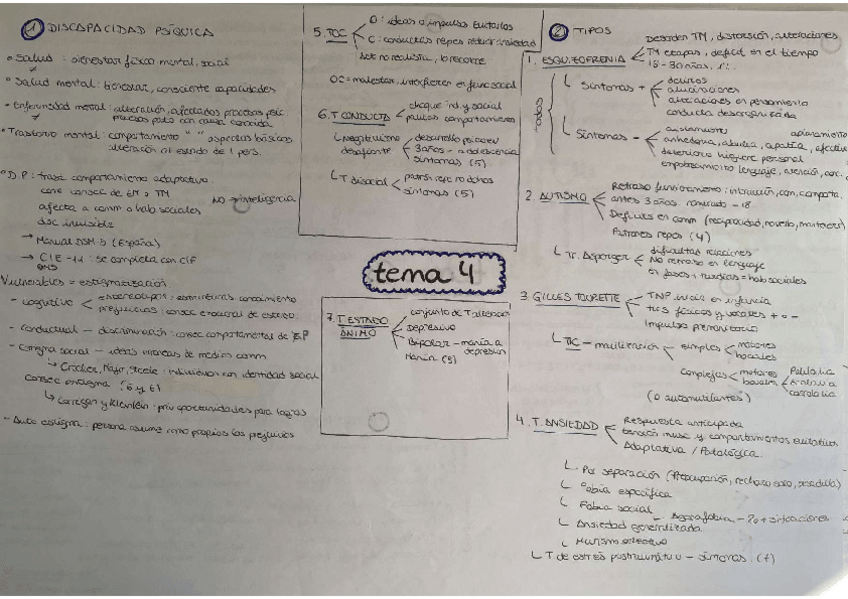 1 DISCAPACIDAD PSÍQUICA
* Salud : bienestar físico mental, social
* Salud mental: bienestar, consciente capacidades
* Enfermedad mental: alteración, afectados procesos psic
causa conocida
* Trastorno mental: comportamiento " " aspectos básicos
alteración al estado de 1 pers.
* D.P: trast comportamiento adaptativo.
como consec de EM o TM
NO → inteligencia
afecta a comm o hab sociales
disc invisible
→ Manual DSM-5 (España)
→ CIE-11 : se completa con CIF
OMS
Vulnerables = estigmatización
- cognitivo < estereotipos : estructuras conocimiento
prejuicios : consec emocional de estereo.
- conductual - discriminación : consec comportamental de
- Estigma social - ideas de medios comm
→ Crocker, Major, Steele : individuos con identidad social
consec estigma (5 y 6)
↳ Corrigan y Kleinlein : priv oportunidades para logros
- Auto estigma : persona asume como propios los prejuicios
5. TOC
O : ideas o impulsos
C : conductas repet reducir ansiedad
no realista, lo reconoce
OC = malestar, interfieren en func social
6. T CONDUCTA
choque ind. y social
comportamiento
↳ Negativismo desafiante
desarrollo psicoev
3 años - adolescencia
síntomas (5)
↳ T disocial
patrón repe no dchos
síntomas (5)
tema 4
7. T ESTADO ÁNIMO
conjunto de T alteración
depresivo
Bipolar - manía a depresión
Manía (5)
2 TIPOS
1. ESQUIZOFRENIA
Desorden TM, distorsión, alteraciones
TM etapas, déficit en el tiempo
18 - 30 años, 1%
Síntomas +
delirios
alucinaciones
alteraciones en pensamiento
conducta desorganizada
Síntomas -
aislamiento
anhedonia, abulia, apatía, afectiva
deterioro higiene personal
empobrecimiento lenguaje, atención, conc.
2. AUTISMO
Retraso funcionamiento : interacción, com, comporta.
antes 3 años.
Déficits en comm (reciprocidad, noverbal, mantener)
Patrones repes (4)
↳ Tr. Asperger
dificultad relaciones
NO retraso en lenguaje
en fases + tardías = hab sociales
3. GILLES TOURETTE
TNP inicia en infancia
tics físicos y vocales + o -
Impulso premonitorio
↳ TIC - simples < motores
vocales
complejos < motores
vocales
Palilalia
Ecolalia
coprolalia
(o automutilantes)
4. T. ANSIEDAD
Respuesta anticipada
tensión musc y comportamientos evitativos
Adaptativa / Patológica.
↳ Por separación (Preocupación, rechazo solo, pesadilla)
↳ Fobia específica
↳ Fobia social
↳ Agorafobia - 2 o + situaciones
↳ Ansiedad generalizada
↳ Mutismo selectivo
↳ T de estrés postraumático - síntomas (7)